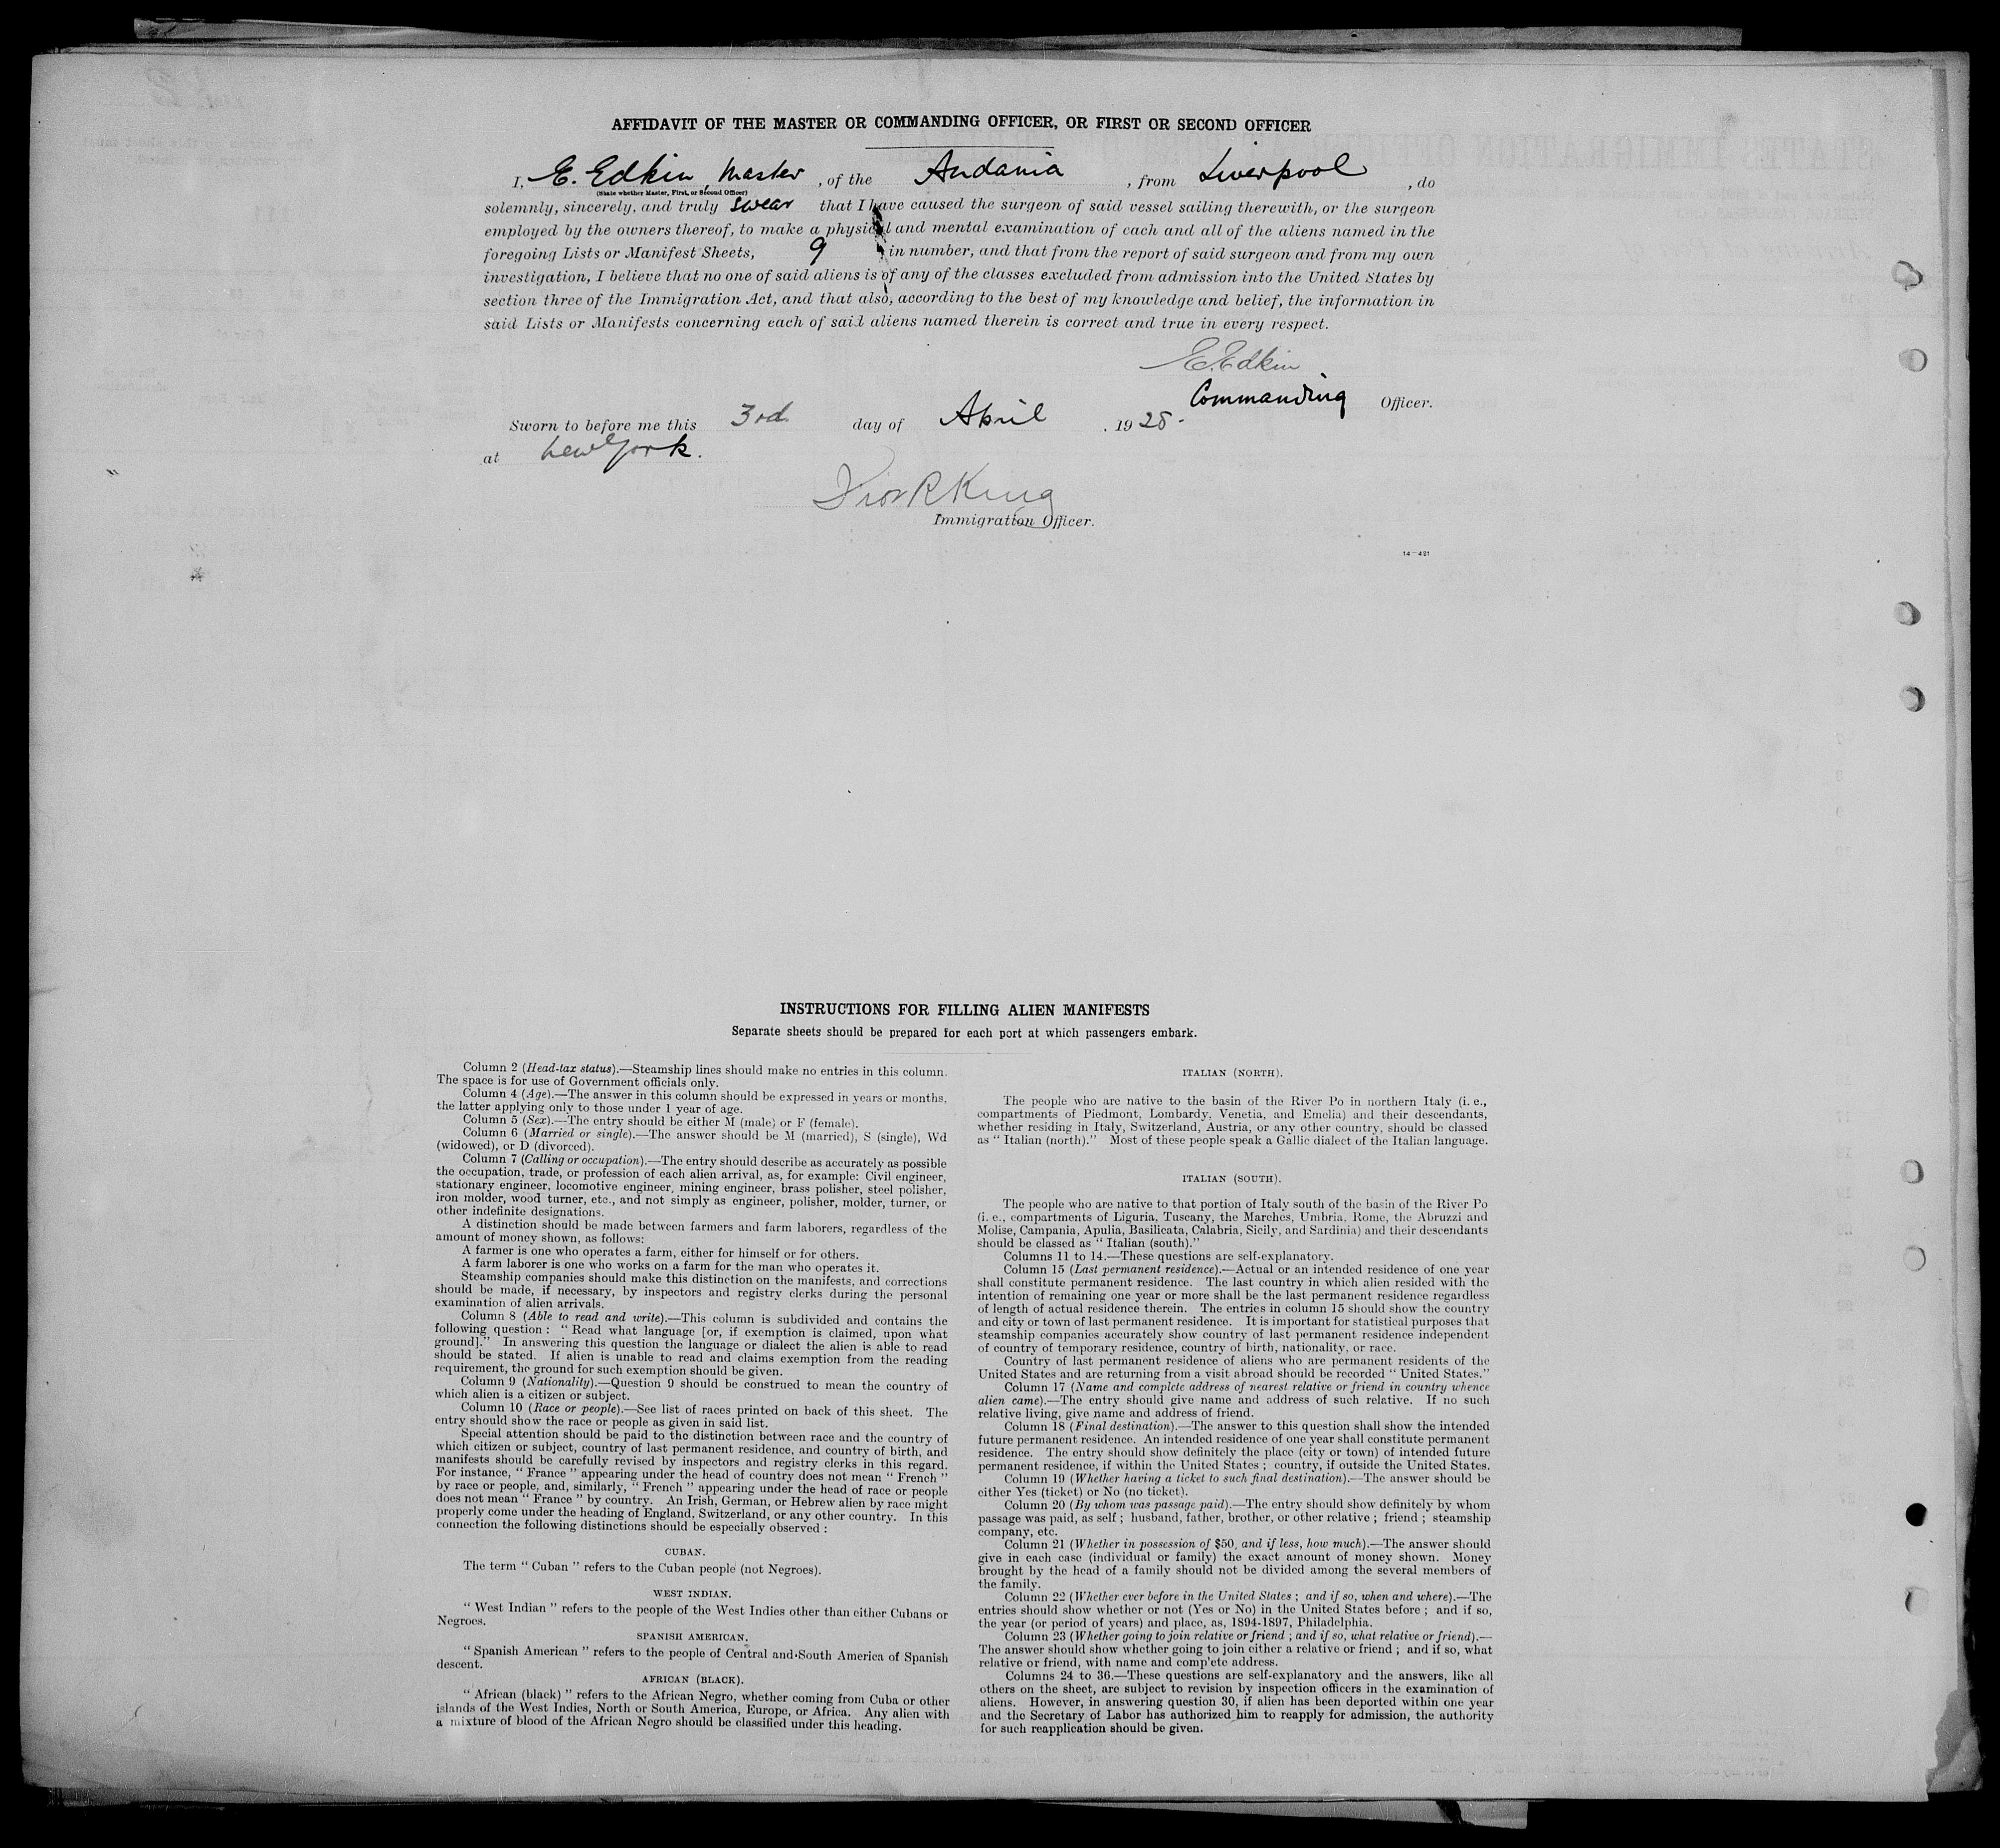 AFFIDAVIT OF THE MASTER OR COMMANDING OFFICER, OR FIRST OR SECOND OFFICER
I, E. Edkin, Master, of the Andania, from Liverpool, do
(State whether Master, First, or Second Officer)
solemnly, sincerely, and truly swear that I have caused the surgeon of said vessel sailing therewith, or the surgeon
employed by the owners thereof, to make a physical and mental examination of each and all of the aliens named in the
foregoing Lists or Manifest Sheets, 9 in number, and that from the report of said surgeon and from my own
investigation, I believe that no one of said aliens is of any of the classes excluded from admission into the United States by
section three of the Immigration Act, and that also, according to the best of my knowledge and belief, the information in
said Lists or Manifests concerning each of said aliens named therein is correct and true in every respect.
E. Edkin
Commanding Officer.
Sworn to before me this 3rd day of April, 1925.
at New York.
R King
Immigration Officer.
14—421
INSTRUCTIONS FOR FILLING ALIEN MANIFESTS
Separate sheets should be prepared for each port at which passengers embark.
Column 2 (Head-tax status).—Steamship lines should make no entries in this column.
The space is for use of Government officials only.
Column 4 (Age).—The answer in this column should be expressed in years or months,
the latter applying only to those under 1 year of age.
Column 5 (Sex).—The entry should be either M (male) or F (female).
Column 6 (Married or single).—The answer should be M (married), S (single), Wd
(widowed), or D (divorced).
Column 7 (Calling or occupation).—The entry should describe as accurately as possible
the occupation, trade, or profession of each alien arrival, as, for example: Civil engineer,
stationary engineer, locomotive engineer, mining engineer, brass polisher, steel polisher,
iron molder, wood turner, etc., and not simply as engineer, polisher, molder, turner, or
other indefinite designations.
A distinction should be made between farmers and farm laborers, regardless of the
amount of money shown, as follows:
A farmer is one who operates a farm, either for himself or for others.
A farm laborer is one who works on a farm for the man who operates it.
Steamship companies should make this distinction on the manifests, and corrections
should be made, if necessary, by inspectors and registry clerks during the personal
examination of alien arrivals.
Column 8 (Able to read and write).—This column is subdivided and contains the
following question: "Read what language [or, if exemption is claimed, upon what
ground]." In answering this question the language or dialect the alien is able to read
should be stated. If alien is unable to read and claims exemption from the reading
requirement, the ground for such exemption should be given.
Column 9 (Nationality).—Question 9 should be construed to mean the country of
which alien is a citizen or subject.
Column 10 (Race or people).—See list of races printed on back of this sheet. The
entry should show the race or people as given in said list.
Special attention should be paid to the distinction between race and the country of
which citizen or subject, country of last permanent residence, and country of birth, and
manifests should be carefully revised by inspectors and registry clerks in this regard.
For instance, "France" appearing under the head of country does not mean "French"
by race or people, and, similarly, "French" appearing under the head of race or people
does not mean "France" by country. An Irish, German, or Hebrew alien by race might
properly come under the heading of England, Switzerland, or any other country. In this
connection the following distinctions should be especially observed:
CUBAN.
The term "Cuban" refers to the Cuban people (not Negroes).
WEST INDIAN.
"West Indian" refers to the people of the West Indies other than either Cubans or
Negroes.
SPANISH AMERICAN.
"Spanish American" refers to the people of Central and South America of Spanish
descent.
AFRICAN (BLACK).
"African (black)" refers to the African Negro, whether coming from Cuba or other
islands of the West Indies, North or South America, Europe, or Africa. Any alien with
a mixture of blood of the African Negro should be classified under this heading.
ITALIAN (NORTH).
The people who are native to the basin of the River Po in northern Italy (i. e.,
compartments of Piedmont, Lombardy, Venetia, and Emelia) and their descendants,
whether residing in Italy, Switzerland, Austria, or any other country, should be classed
as "Italian (north)." Most of these people speak a Gallic dialect of the Italian language.
ITALIAN (SOUTH).
The people who are native to that portion of Italy south of the basin of the River Po
(i. e., compartments of Liguria, Tuscany, the Marches, Umbria, Rome, the Abruzzi and
Molise, Campania, Apulia, Basilicata, Calabria, Sicily, and Sardinia) and their descendants
should be classed as "Italian (south)."
Columns 11 to 14.—These questions are self-explanatory.
Column 15 (Last permanent residence).—Actual or an intended residence of one year
shall constitute permanent residence. The last country in which alien resided with the
intention of remaining one year or more shall be the last permanent residence regardless
of length of actual residence therein. The entries in column 15 should show the country
and city or town of last permanent residence. It is important for statistical purposes that
steamship companies accurately show country of last permanent residence independent
of country of temporary residence, country of birth, nationality, or race.
Country of last permanent residence of aliens who are permanent residents of the
United States and are returning from a visit abroad should be recorded "United States."
Column 17 (Name and complete address of nearest relative or friend in country whence
alien came).—The entry should give name and address of such relative. If no such
relative living, give name and address of friend.
Column 18 (Final destination).—The answer to this question shall show the intended
future permanent residence. An intended residence of one year shall constitute permanent
residence. The entry should show definitely the place (city or town) of intended future
permanent residence, if within the United States; country, if outside the United States.
Column 19 (Whether having a ticket to such final destination).—The answer should be
either Yes (ticket) or No (no ticket).
Column 20 (By whom was passage paid).—The entry should show definitely by whom
passage was paid, as self; husband, father, brother, or other relative; friend; steamship
company, etc.
Column 21 (Whether in possession of $50, and if less, how much).—The answer should
give in each case (individual or family) the exact amount of money shown. Money
brought by the head of a family should not be divided among the several members of
the family.
Column 22 (Whether ever before in the United States; and if so, when and where).—The
entries should show whether or not (Yes or No) in the United States before; and if so,
the year (or period of years) and place, as, 1894-1897, Philadelphia.
Column 23 (Whether going to join relative or friend; and if so, what relative or friend).—
The answer should show whether going to join either a relative or friend; and if so, what
relative or friend, with name and complete address.
Columns 24 to 36.—These questions are self-explanatory and the answers, like all
others on the sheet, are subject to revision by inspection officers in the examination of
aliens. However, in answering question 30, if alien has been deported within one year
and the Secretary of Labor has authorized him to reapply for admission, the authority
for such reapplication should be given.